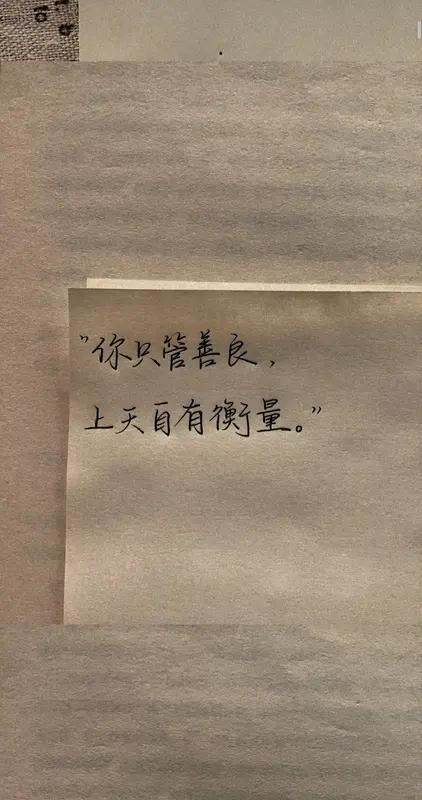 "你只管善良，
上天自有衡量。"